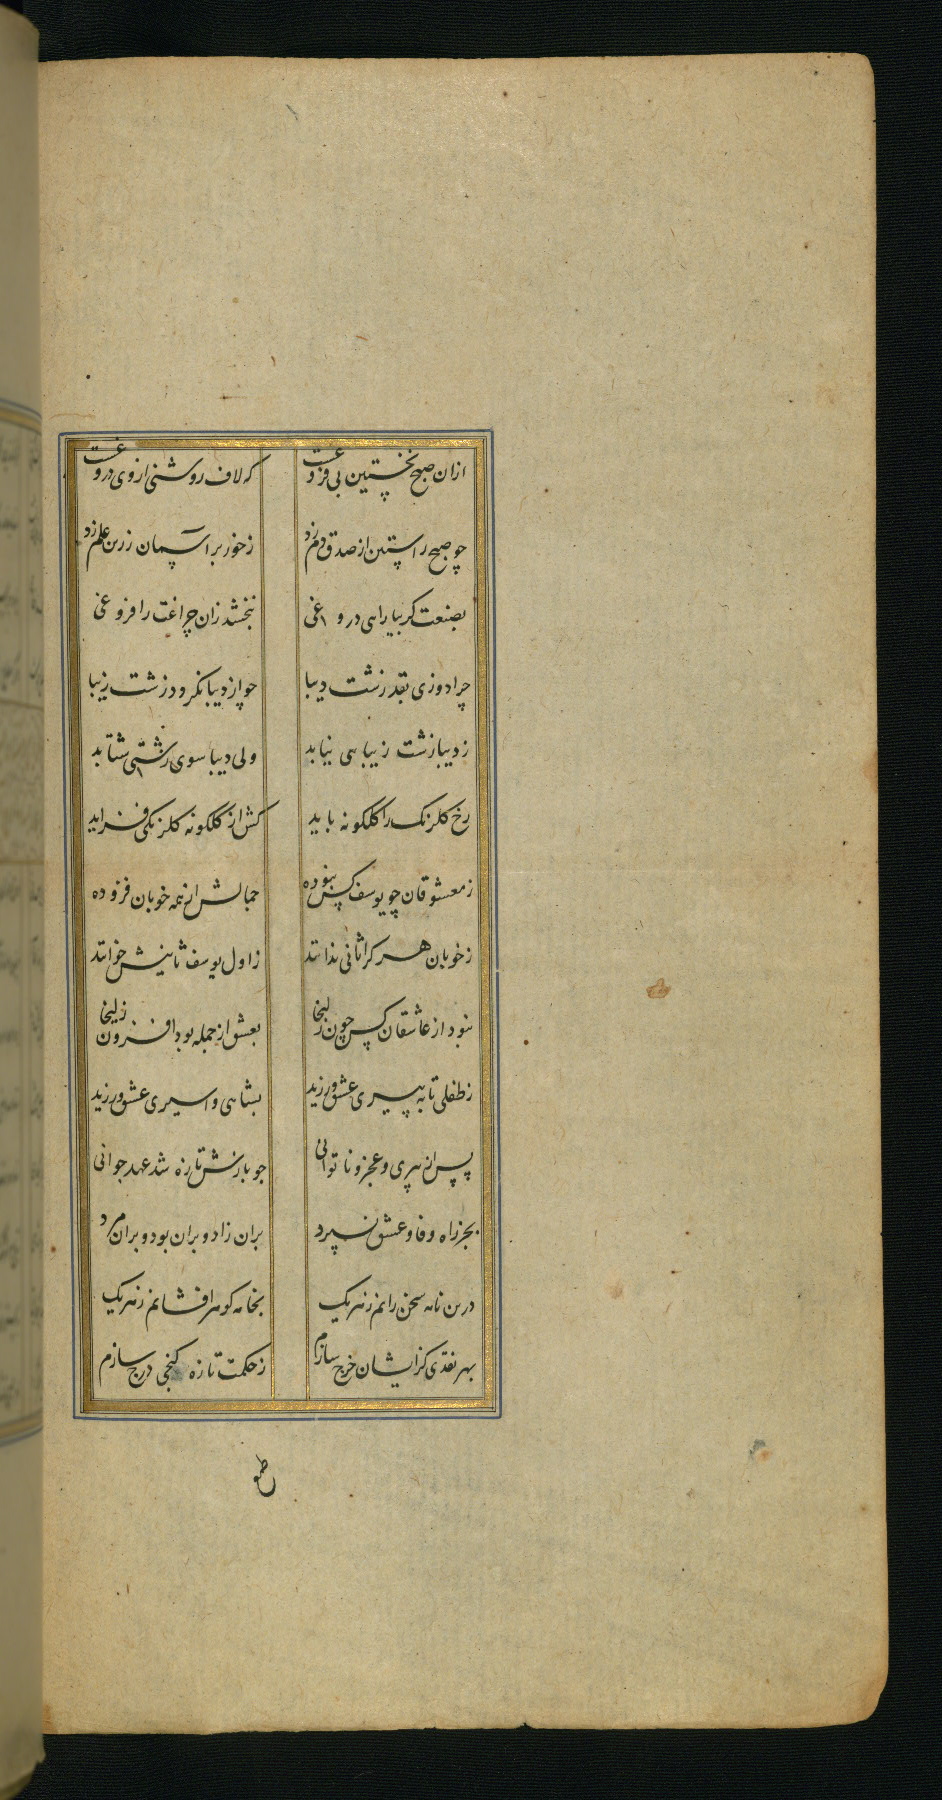 ازان صبح نخستین بی فروغست که لاف روشنی از وی دروغست
چو صبح راستین از صدق دم زد ز خور بر آسمان زرین علم زد
بصنعت کر بیارایی دروغی نبخشد زان چراغت را فروغی
چرا دوزی بقد زشت دیبا چو از دیبا نکردد زشت زیبا
ز دیبا زشت زیبایی نیابد ولی دیبا سوی زشتی شتابد
رخ کلرنک را کلکونه باید کش از کلکونه کلرنکی فزاید
ز معشوقان چو یوسف کس نبوده جمالش از همه خوبان فزوده
ز خوبان هر کرا ثانی ندانند ز اول یوسف ثانیش خوانند
نبود از عاشقان کس چون زلیخا بعشق از جمله بود افزون زلیخا
ز طفلی تا به پیری عشق ورزید بشاهی و اسیری عشق ورزید
پس از پیری و عجز و ناتوانی چو بازش تازه شد عهد جوانی
بجز راه وفا و عشق نسپرد بران زاد و بران بود و بران مرد
درین نامه سخن رانم ز هر یک بخامه کوهر افشانم ز هر یک
بهر نقدی کز ایشان خرج سازم ز حکمت تازه کنجی درج سازم
طمع